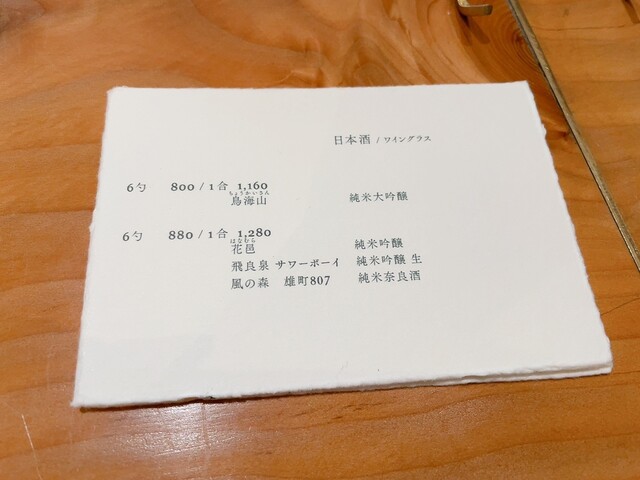 日本酒 / ワイングラス
6勺 800 / 1合 1,160
ちょうかいさん
鳥海山 純米大吟醸
6勺 880 / 1合 1,280
はなむら
花邑 純米吟醸
飛良泉 サワーボーイ 純米吟醸 生
風の森 雄町807 純米奈良酒